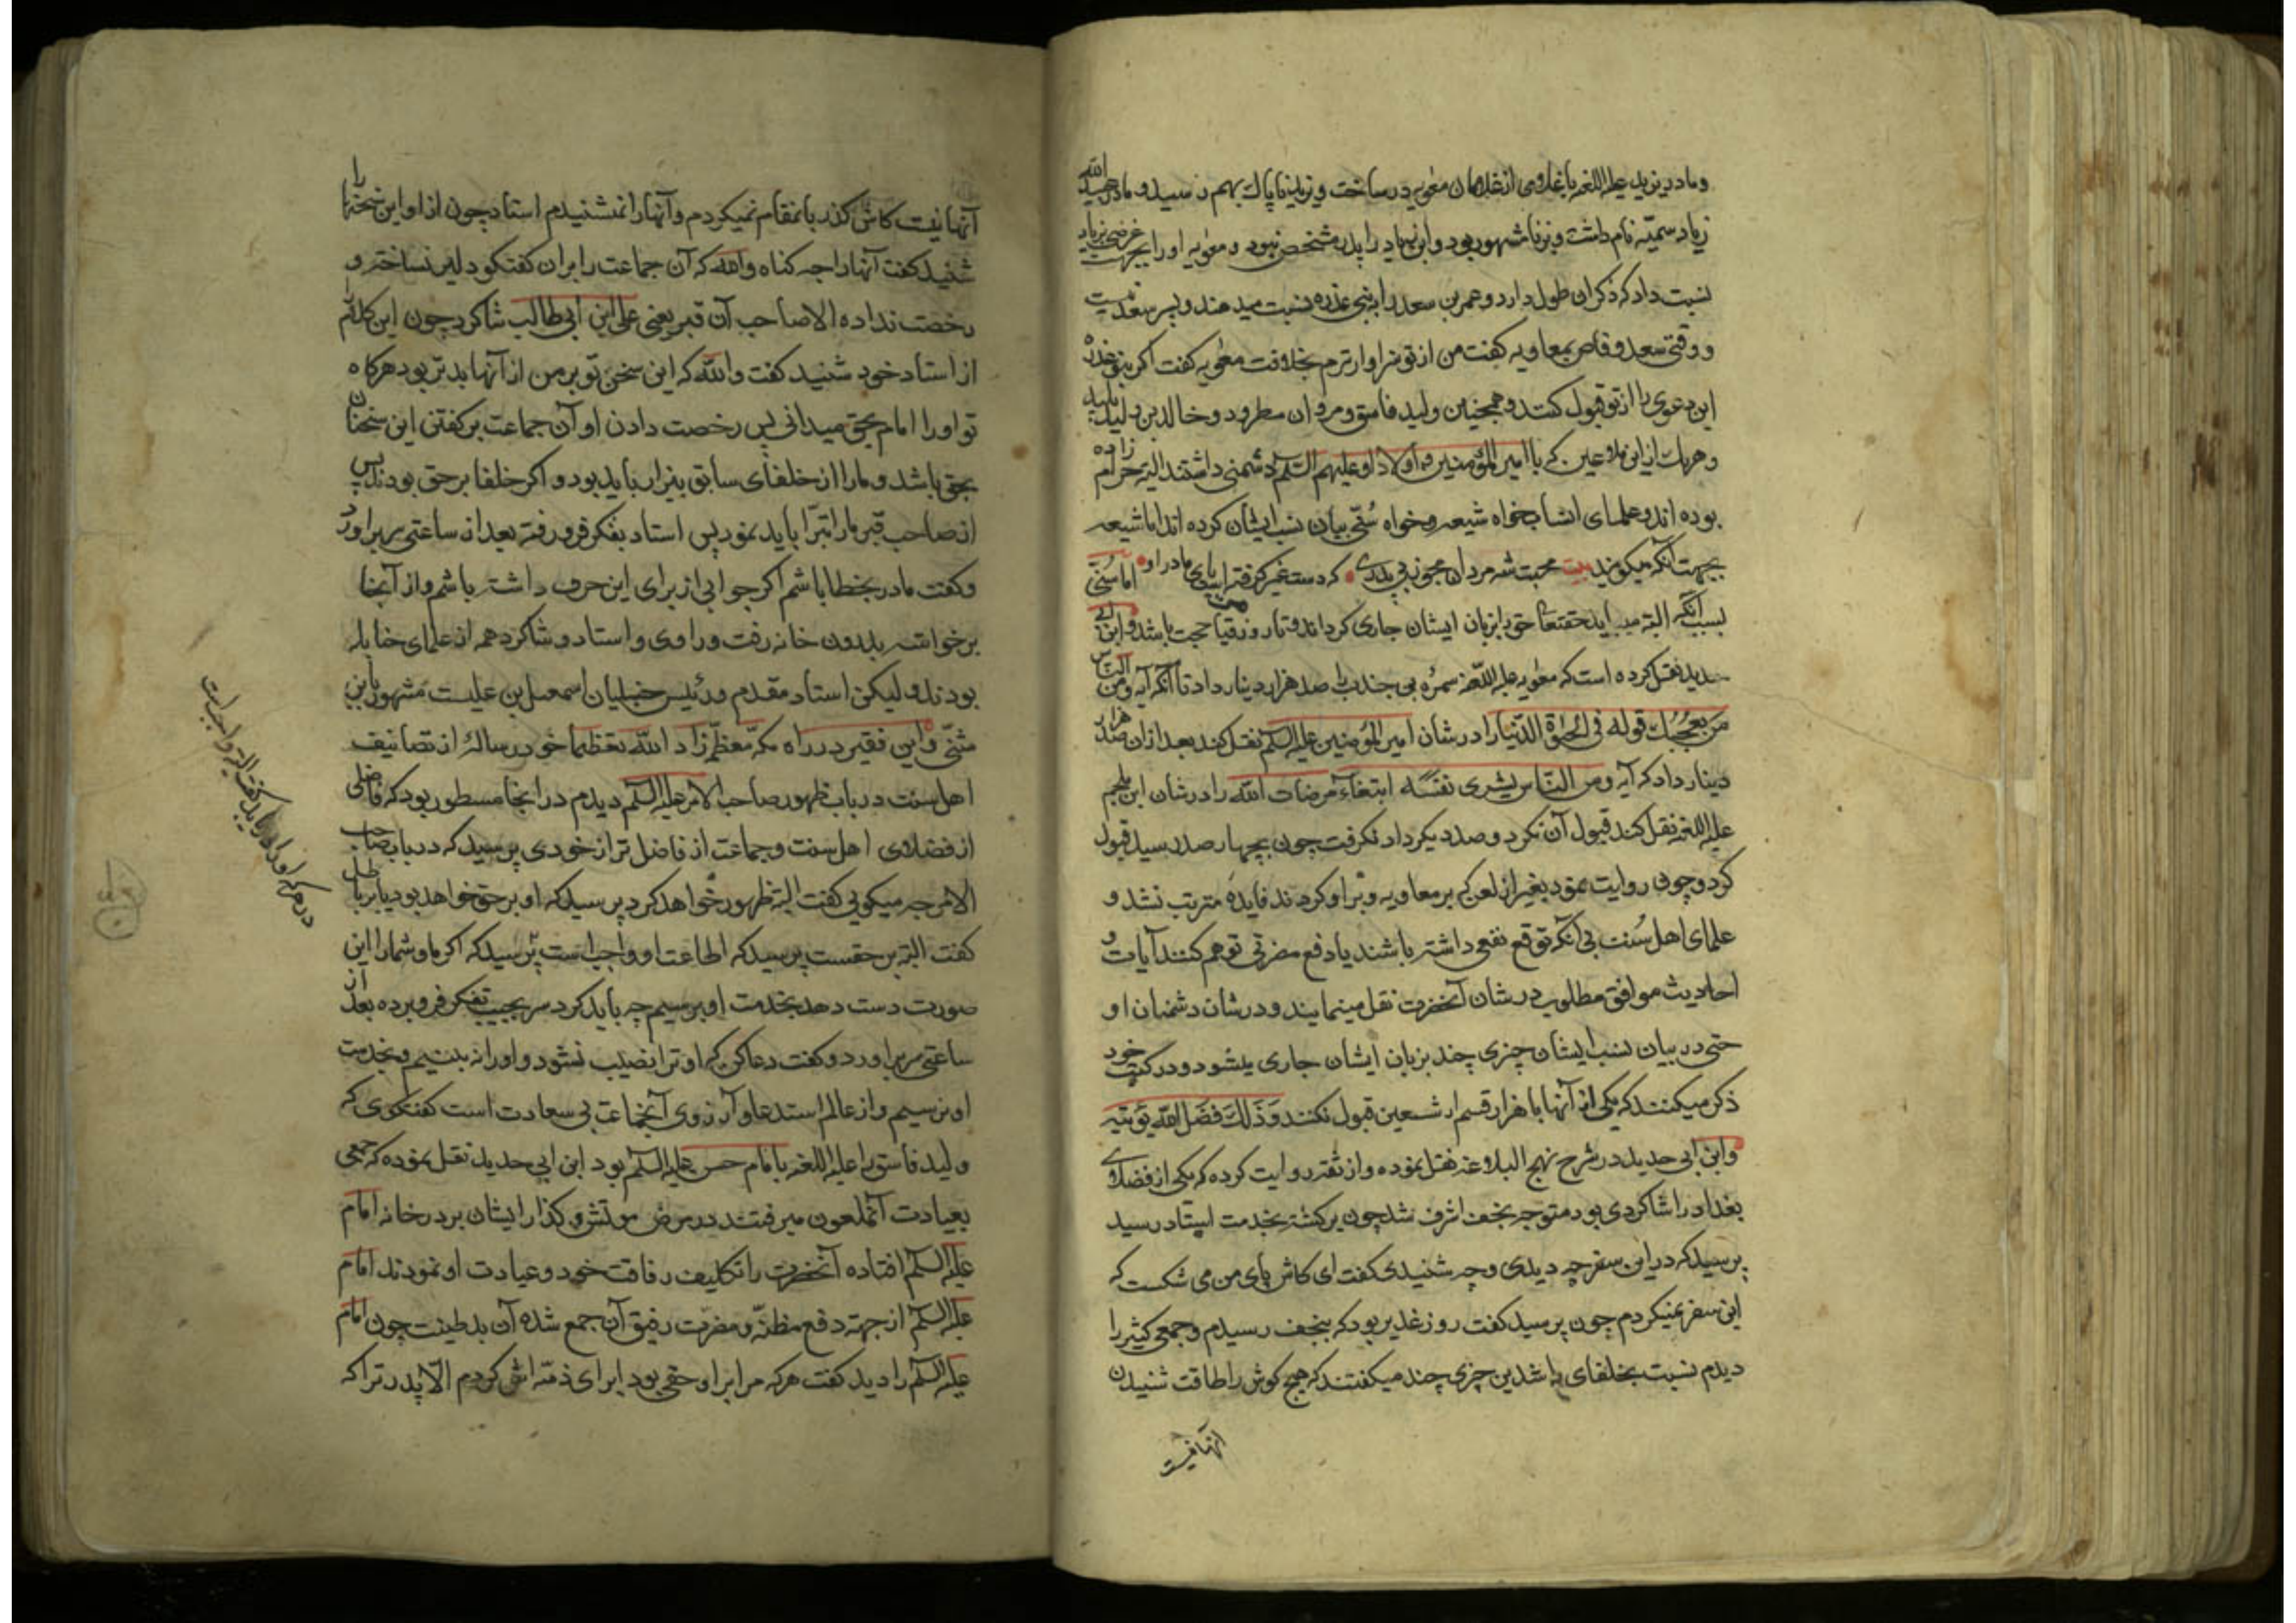 و مادر یزید علیه اللعنه با غلامی از غلامان معویه در ساخت و یزید ناپاک بهم رسید و مادر عبید الله
زیاد سمیّه نام داشت و بزنا مشهور بود و ابن زیاد را پدر مشخص نبود و معویه او را بجهت غرضی بزیاد
نسبت داد که ذکر آن طول دارد و عمر بن سعد را به بنی عذره نسبت میدهند و پسر سعد نیست
و وقتی سعد وقاص بمعاویه کفت من از تو سزاوارترم بخلافت معویه کفت اکر بنو عذره
این دعوی را از تو قبول کنند و همچنین ولید فاسق و مروان مطرود و خالد بن ولید پلید
و هریک از این ملاعین که با امیر المؤمنین و اولاد او علیهم السلم دشمنی داشتند البته حرام زاده
بوده اند و علمای انساب خواه شیعه و خواه سُنّی بیان نسب ایشان کرده اند اما شیعه
بجهت آنکه میکویند بیت محبت شه مردان مجو ز بی پدری که دست غیر کرفته است پای مادر او اما سُنّی
بسبب آنکه البته میباید حقتعالی حق را بزبان ایشان جاری کرداند و تا روز قیامت حجت باشد و ابن ابی
حدید نقل کرده است که معویه علیه اللعنه سمرة بن جندب را صد هزار دینار داد تا آنکه آیه و من الناس
من یعجبک قوله فی الحیوة الدّنیا را در شان امیر المؤمنین علیه السلم نقل کند بعد از ان صد هزار
دینار داد که آیه و من النّاس یشری نفسه ابتغاء مرضات الله را در شان ابن ملجم
علیه اللعنه نقل کند قبول آن نکرد و صد دیکر داد نکرفت چون بچهار صد رسید قبول
کرد و چون روایت نمود بغیر از لعن که بر معاویه و بر او کردند فایدهٔ مترتب نشد و
علمای اهل سُنت بی آنکه توقع نفعی داشته باشند یا دفع مضرتی توهم کنند آیات و
احادیث موافق مطلوب در شان آنحضرت نقل مینمایند و در شان دشمنان او
حتی در بیان نسب ایشان چیزی چند بزبان ایشان جاری میشود و در کتب خود
ذکر میکنند که یکی از آنها با هزار قسم از شیعیان قبول نکنند وَذَلِكَ فَضلُ اللهِ یُؤتیهِ
و ابن ابی حدید در شرح نهج البلاغه نقل نموده و از ثقه روایت کرده که یکی از فضلای
بغداد را شاکردی بود متوجه نجف اشرف شد چون برکشته بخدمت استاد رسید
پرسید که در این سفر چه دیدی و چه شنیدی کفت ای کاش پای من می شکست که
این سفر نمیکردم چون پرسید کفت روز غدیر بود که بنجف رسیدم و جمعی کثیر را
دیدم نسبت بخلفای راشدین چیزی چند میکفتند که هیچ کوش را طاقت شنیدن
آنها نیست
آنها نیست کاش کذر بانمقام نمیکردم و آنها را نمیشنیدم استاد چون از او این سخنها را
شنید کفت آنها را چه کناه والله که آن جماعت را بر ان کفتکو دلیر نساخته و
رخصت نداده الا صاحب آن قبر یعنی علی ابن ابی طالب شاکرد چون این کلام را
از استاد خود شنید کفت والله که این سخن تو بر من از آنها بدتر بود هرکاه
تو او را امام بحق میدانی پس رخصت دادن او آن جماعت بر کفتن این سخنان
بحق باشد و ما را از خلفای سابق بیزار باید بود و اکر خلفا بر حق بودند پس
از صاحب قبر ما را تبرّا باید نمود پس استاد بفکر فرو رفته بعد از ساعتی سر براورد
و کفت مادر بخطا باشم اکر جوابی از برای این حرف داشته باشم و از آنجا
برخواسته بدرون خانه رفت و راوی و استاد و شاکرد همه از علمای حنابله
بودند و لیکن استاد مقدم و رئیس حنبلیان اسمعیل بن علیست مشهور بابن
مثنّی و این فقیر در راه مکّه معظّمه زاد الله تعظیما خود رسالهٔ از تصانیف
اهل سنت در باب ظهور صاحب الامر علیه السلم دیدم در انجا مسطور بود که فاضلی
از فضلای اهل سنت و جماعت از فاضل تر از خودی پرسید که در باب صاحب
الامر چه میکوئی کفت البته ظهور خواهد کرد پرسید که او بر حق خواهد بود یا بر باطل
کفت البته بر حقست پرسید که اطاعت او واجب است پرسید که اکر ما و شما را این
صورت دست دهد بخدمت او برسیم چه باید کرد سر بجیب تفکر فرو برده بعد از
ساعتی سر براورد و کفت دعا کن که او ترا نصیب نشود و او را نه بینیم و بخدمت
او نرسیم و از عالم استدعا و آرزوی آنجماعت بی سعادت است کفتکوی که
ولید فاسق را علیه اللعنه با امام حسن علیه السلم بود ابن ابی حدید نقل نموده که جمعی
بعیادت آنملعون میرفتند در مرض موتش و کذار ایشان بر در خانه امام
علیه السلم افتاده آنحضرت را تکلیف رفاقت خود و عیادت او نمودند امام
علیه السلم از جهة دفع مظنّه و مضرّت رفیق آن جمع شده آن بدطینت چون امام
علیه السلم را دید کفت هرکه مرا بر او حقی بود ابرای ذمّه اش کردم الّا پدر ترا که